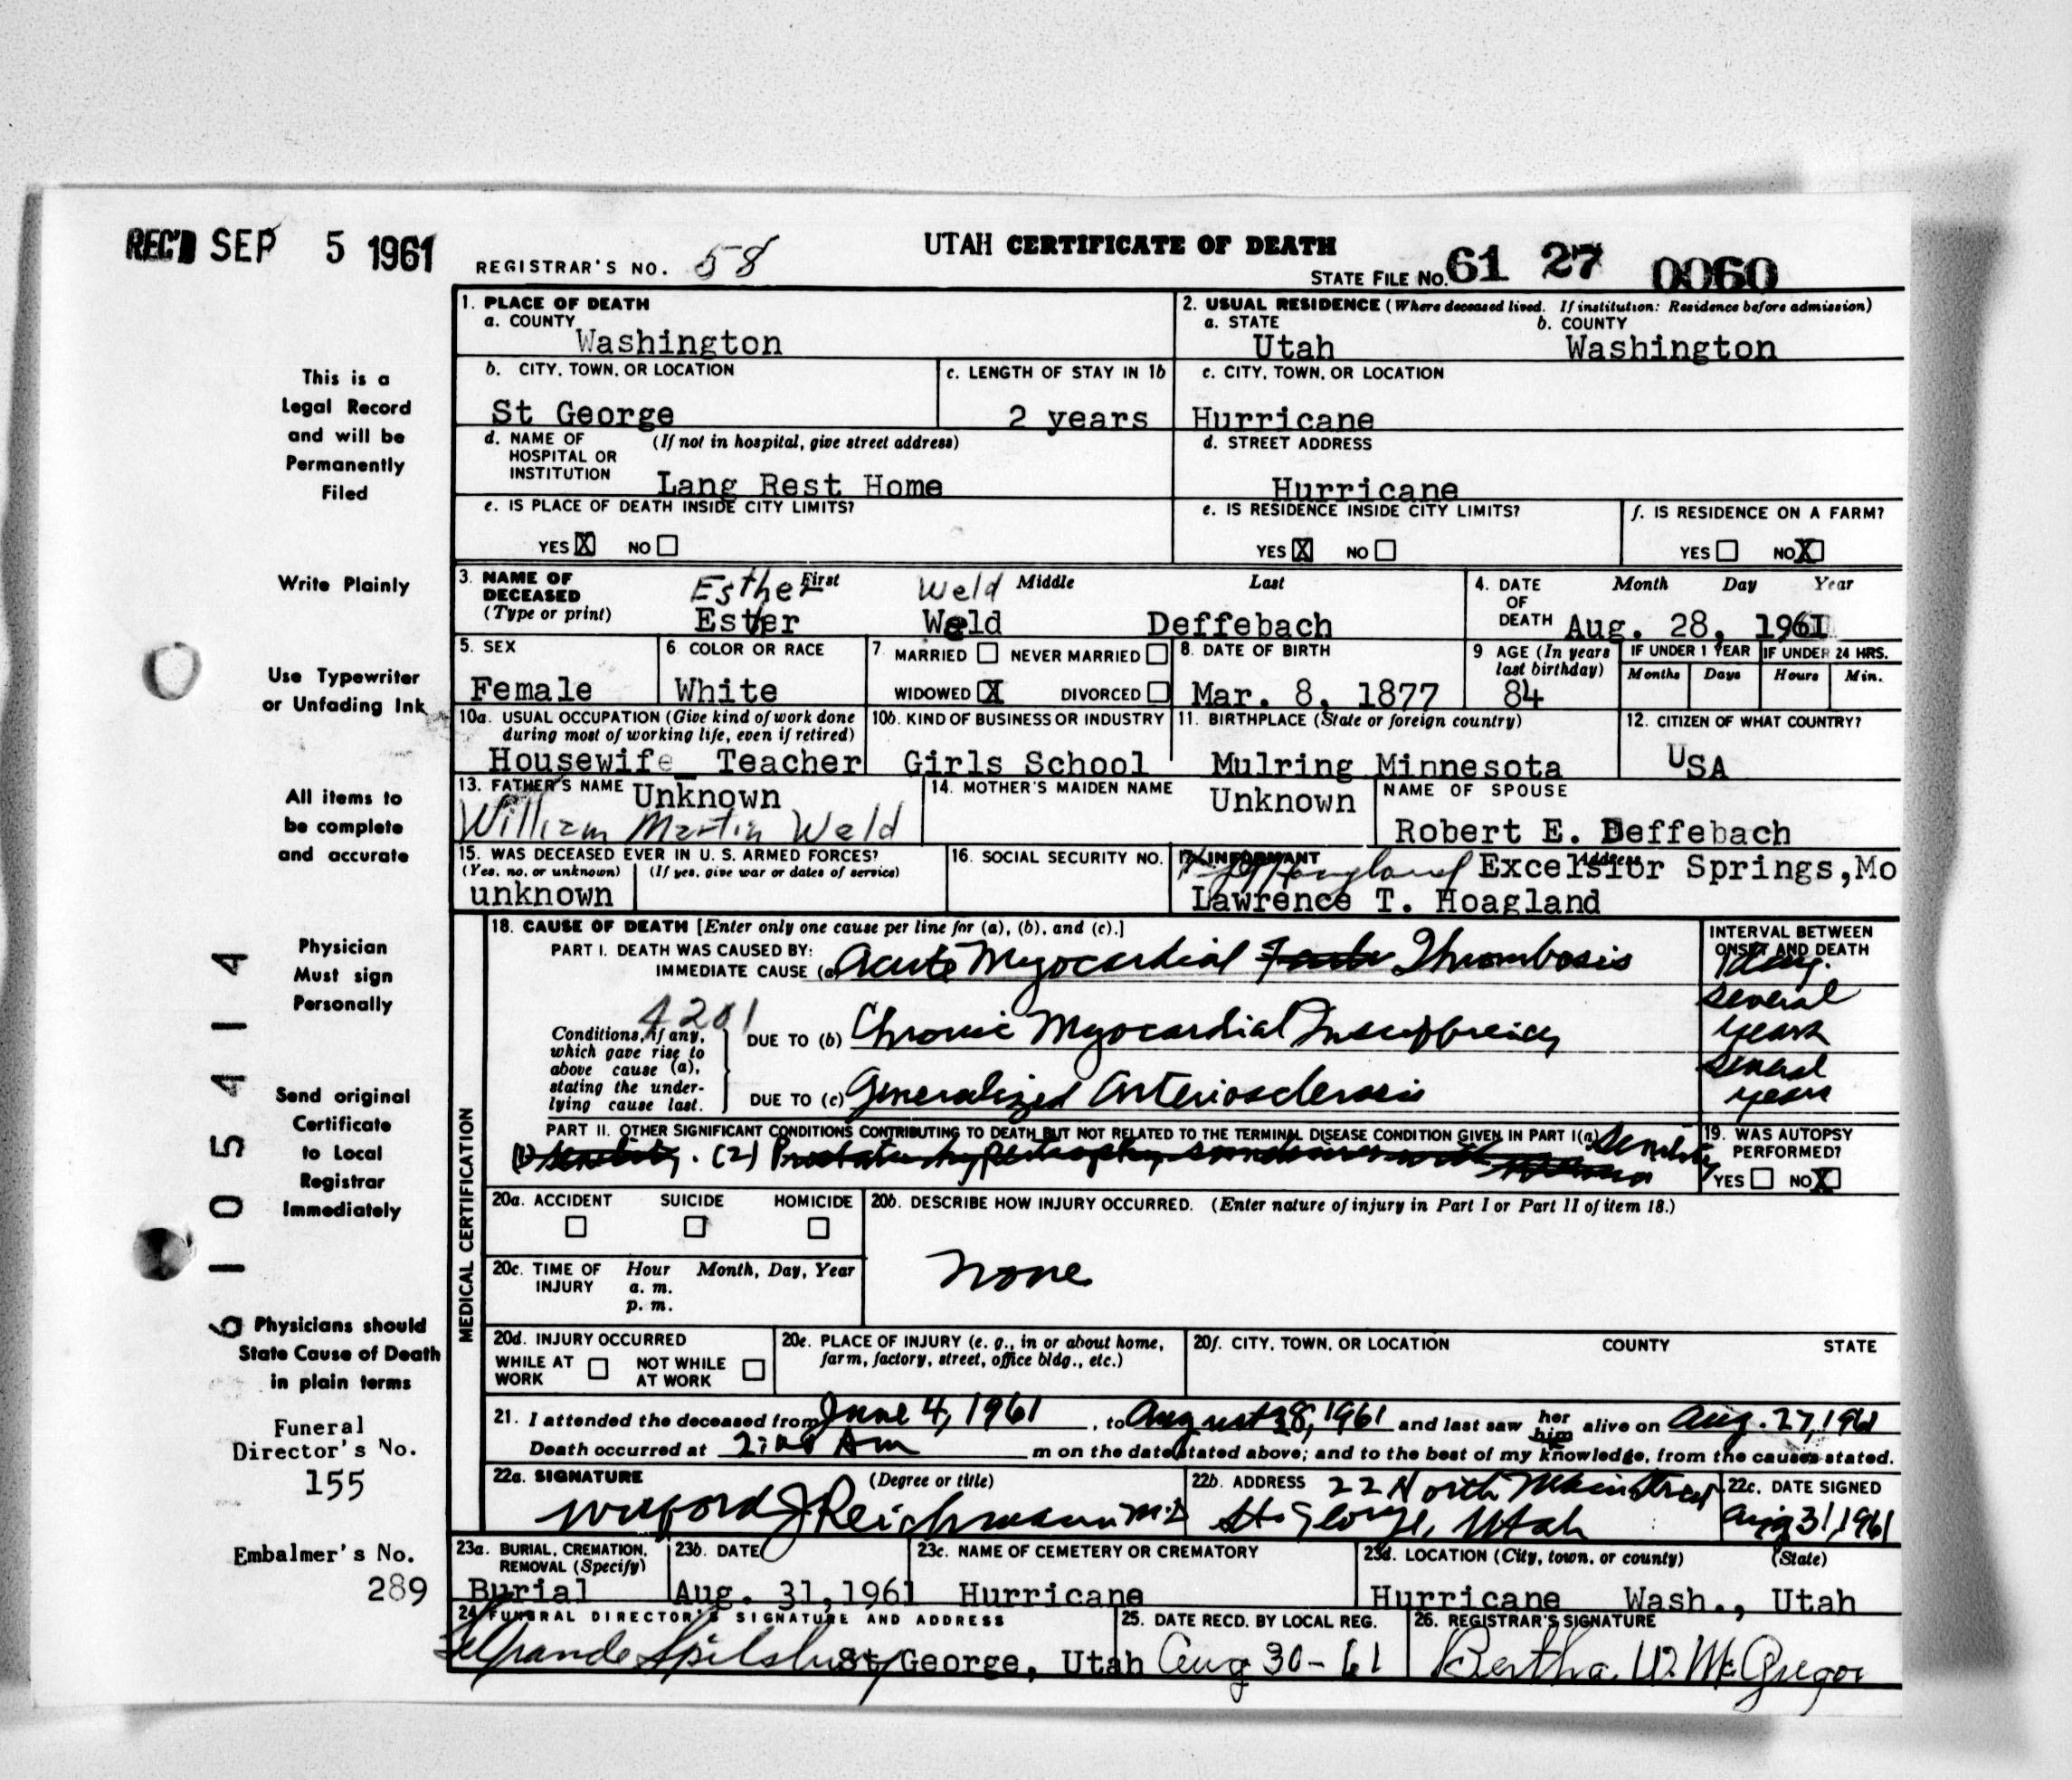 REC'D SEP 5 1961
UTAH CERTIFICATE OF DEATH
REGISTRAR'S NO. 58
STATE FILE NO. 61 27 0060
1. PLACE OF DEATH
a. COUNTY
Washington
2. USUAL RESIDENCE (Where deceased lived. If institution: Residence before admission)
a. STATE b. COUNTY
Utah Washington
b. CITY, TOWN, OR LOCATION
St George
c. LENGTH OF STAY IN 1b
2 years
c. CITY, TOWN, OR LOCATION
Hurricane
d. NAME OF (If not in hospital, give street address)
HOSPITAL OR
INSTITUTION
Lang Rest Home
d. STREET ADDRESS
Hurricane
e. IS PLACE OF DEATH INSIDE CITY LIMITS?
YES X NO
e. IS RESIDENCE INSIDE CITY LIMITS?
YES X NO
f. IS RESIDENCE ON A FARM?
YES NO X
3. NAME OF DECEASED
(Type or print)
First Middle Last
Esther Weld
Ester Weld Deffebach
4. DATE OF DEATH
Month Day Year
Aug. 28, 1961
5. SEX
Female
6. COLOR OR RACE
White
7. MARRIED NEVER MARRIED
WIDOWED X DIVORCED
8. DATE OF BIRTH
Mar. 8, 1877
9 AGE (In years
last birthday)
84
IF UNDER 1 YEAR IF UNDER 24 HRS.
Months Days Hours Min.
10a. USUAL OCCUPATION (Give kind of work done
during most of working life, even if retired)
Housewife Teacher
10b. KIND OF BUSINESS OR INDUSTRY
Girls School
11. BIRTHPLACE (State or foreign country)
Mulring Minnesota
12. CITIZEN OF WHAT COUNTRY?
USA
13. FATHER'S NAME Unknown
William Martin Weld
14. MOTHER'S MAIDEN NAME
Unknown
NAME OF SPOUSE
Robert E. Deffebach
15. WAS DECEASED EVER IN U. S. ARMED FORCES?
(Yes, no, or unknown) (If yes, give war or dates of service)
unknown
16. SOCIAL SECURITY NO.
17. INFORMANT Address
Hoagland Excelsior Springs, Mo
Lawrence T. Hoagland
18. CAUSE OF DEATH [Enter only one cause per line for (a), (b), and (c).]
INTERVAL BETWEEN
ONSET AND DEATH
PART I. DEATH WAS CAUSED BY:
IMMEDIATE CAUSE (a) Acute Myocardial Thrombosis
1 day.
4201
Conditions, if any,
which gave rise to
above cause (a),
stating the under-
lying cause last.
DUE TO (b) Chronic Myocardial Insufficiency
several
years
DUE TO (c) Generalized Arteriosclerosis
several
years
PART II. OTHER SIGNIFICANT CONDITIONS CONTRIBUTING TO DEATH BUT NOT RELATED TO THE TERMINAL DISEASE CONDITION GIVEN IN PART I(a) Senility
(1) Senility. (2) Prostatic hypertrophy
19. WAS AUTOPSY
PERFORMED?
YES NO X
MEDICAL CERTIFICATION
20a. ACCIDENT SUICIDE HOMICIDE
20b. DESCRIBE HOW INJURY OCCURRED. (Enter nature of injury in Part I or Part II of item 18.)
none
20c. TIME OF INJURY
Hour Month, Day, Year
a. m.
p. m.
20d. INJURY OCCURRED
WHILE AT WORK NOT WHILE AT WORK
20e. PLACE OF INJURY (e. g., in or about home,
farm, factory, street, office bldg., etc.)
20f. CITY, TOWN, OR LOCATION COUNTY STATE
21. I attended the deceased from June 4, 1961, to August 28, 1961 and last saw her him alive on Aug. 27, 1961
Death occurred at 2:00 Am m on the date stated above; and to the best of my knowledge, from the causes stated.
22a. SIGNATURE (Degree or title)
Wilford J Reichmann M.D
22b. ADDRESS 22 North Main Street
St. George, Utah
22c. DATE SIGNED
Aug 31, 1961
23a. BURIAL, CREMATION,
REMOVAL (Specify)
Burial
23b. DATE
Aug. 31, 1961
23c. NAME OF CEMETERY OR CREMATORY
Hurricane
23d. LOCATION (City, town, or county) (State)
Hurricane Wash., Utah
24. FUNERAL DIRECTOR'S SIGNATURE AND ADDRESS
LeGrande Spilsbury St George, Utah
25. DATE RECD. BY LOCAL REG.
Aug 30-61
26. REGISTRAR'S SIGNATURE
Bertha W. McGregor
This is a
Legal Record
and will be
Permanently
Filed
Write Plainly
Use Typewriter
or Unfading Ink
All items to
be complete
and accurate
Physician
Must sign
Personally
Send original
Certificate
to Local
Registrar
Immediately
Physicians should
State Cause of Death
in plain terms
Funeral
Director's No.
155
Embalmer's No.
289
6105414